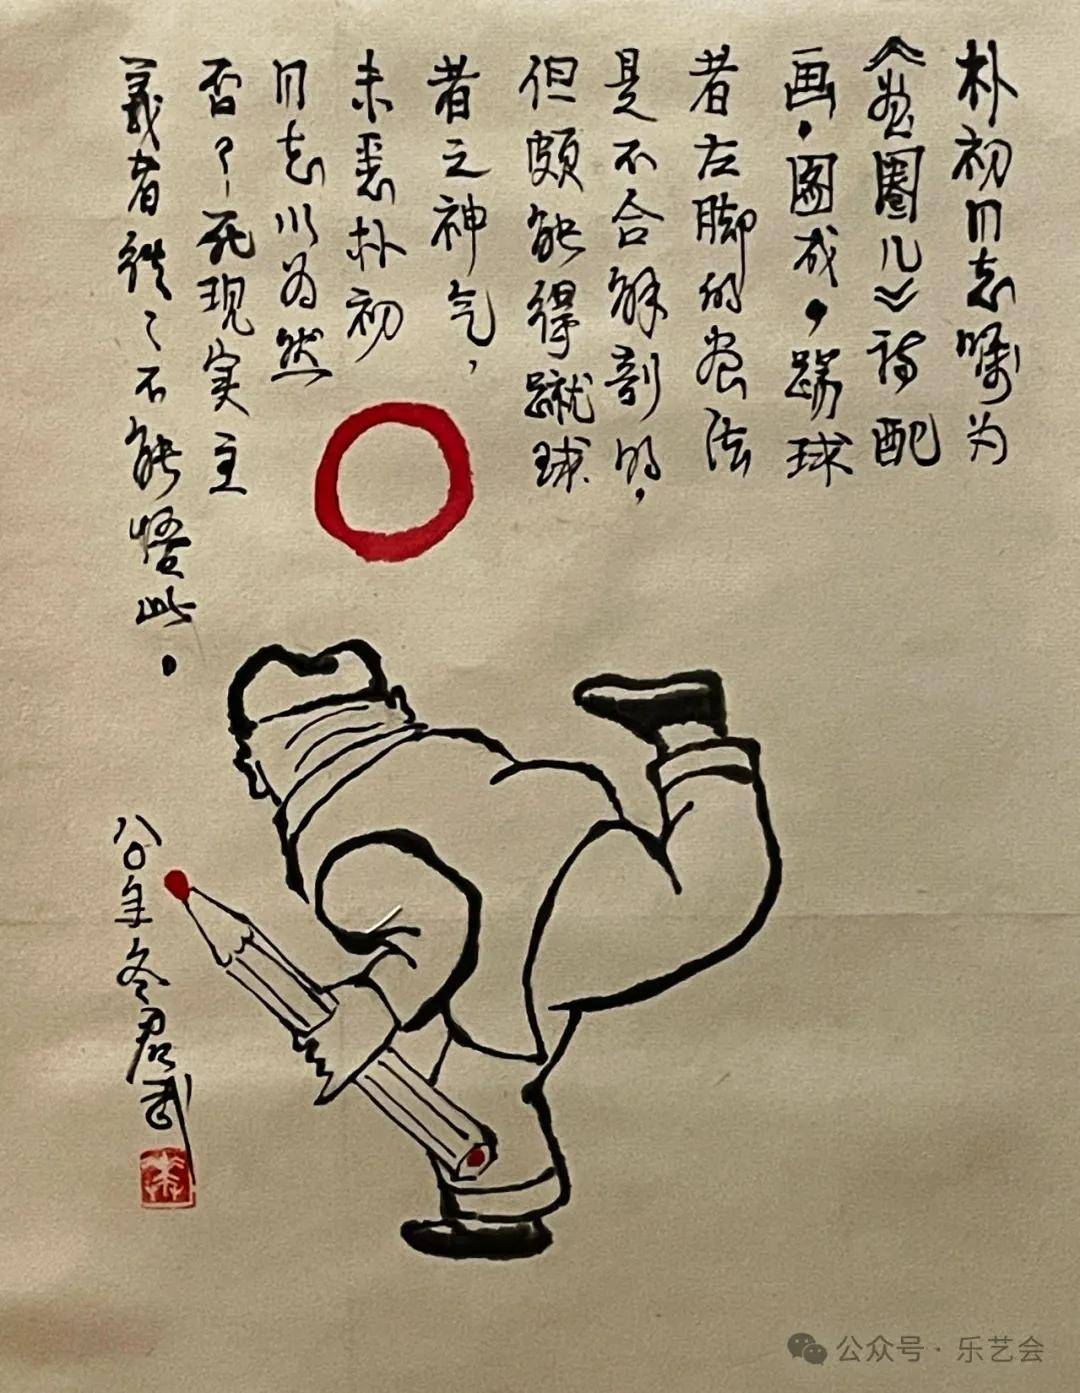 朴初同志嘱为
《畫圈儿》诗配
画。图成，踢球
者左脚的畫法
是不合解剖的，
但颇能得蹴球
者之神气，
未悉朴初
同志以为然
否？死现实主
義者往々不能悟此。
八〇年冬君武
公众号 · 乐艺会